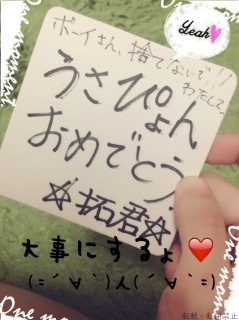 One moment
Yeah
ボーイさん、捨てないで!!
わたして。
うさぴょん
おめでとう
☆拓君☆
大事にするょ❤
(=´∀`)人(´∀`=)
One moment
One moment
転載・転用禁止